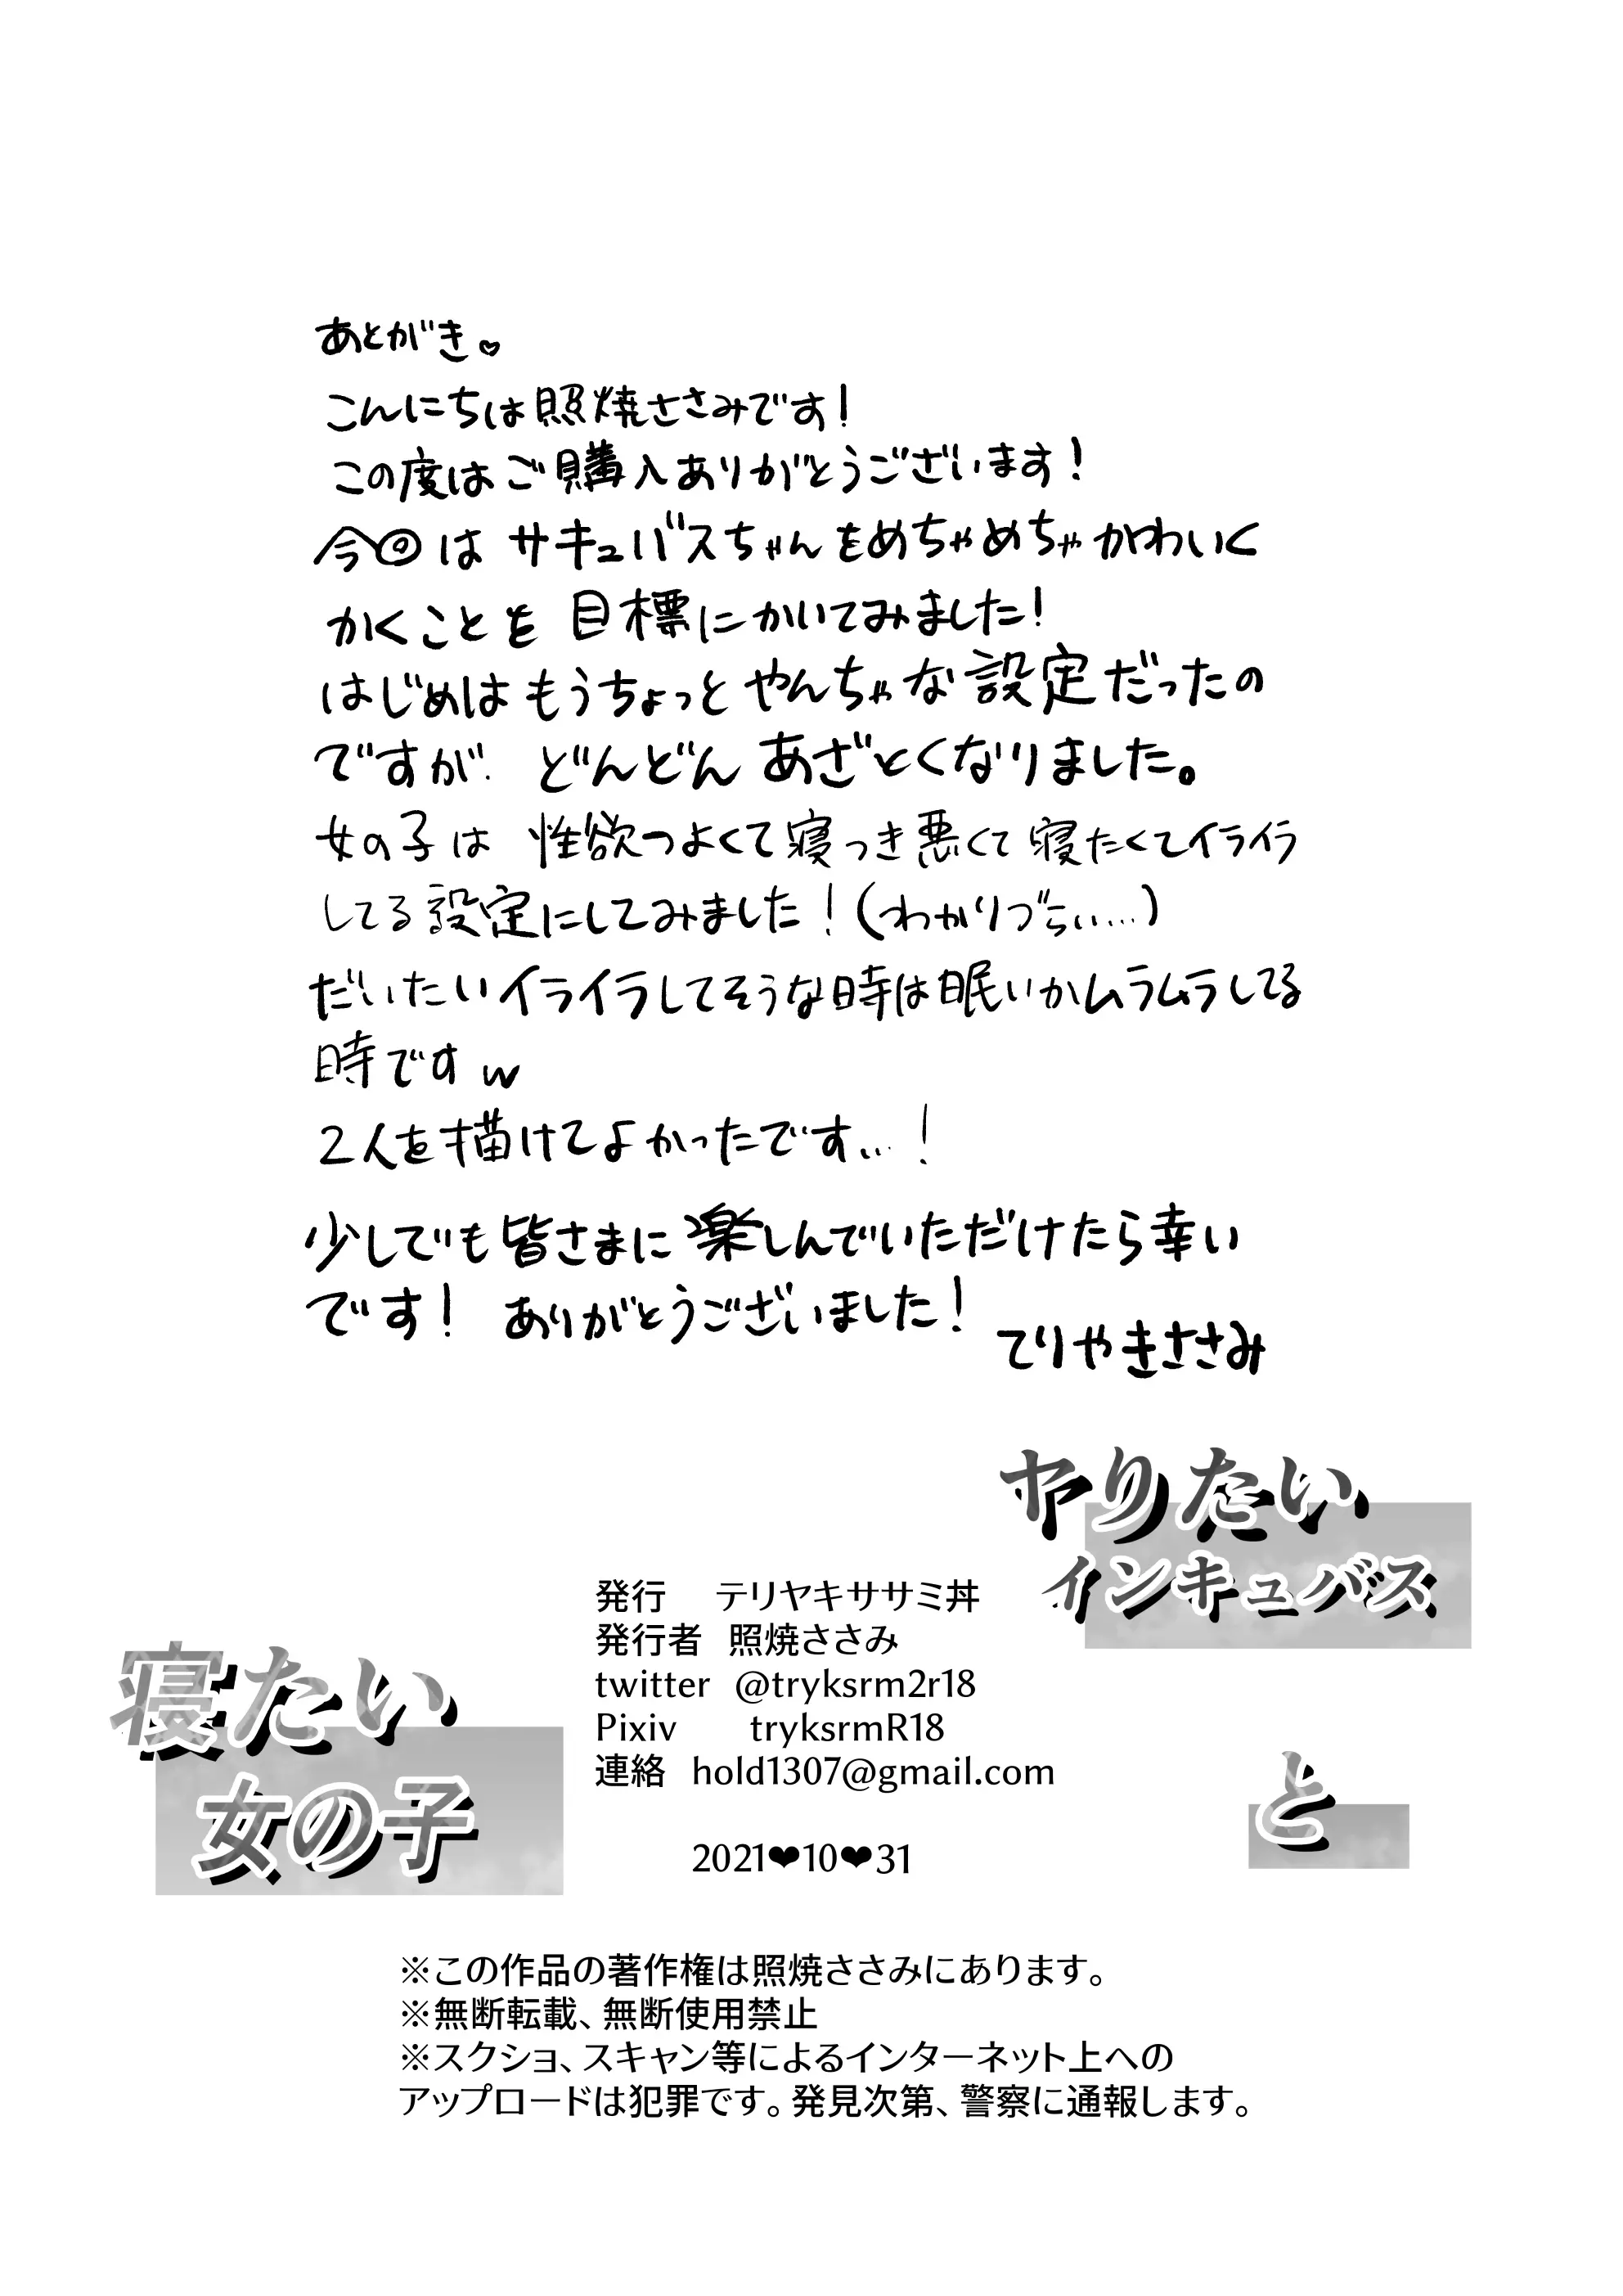 あとがき♡
こんにちは照焼ささみです！
この度はご購入ありがとうございます！
今回はサキュバスちゃんをめちゃめちゃかわいく
かくことを目標にかいてみました！
はじめはもうちょっとやんちゃな設定だったの
ですが、どんどんあざとくなりました。
女の子は性欲つよくて寝つき悪くて寝たくてイライラ
してる設定にしてみました！（わかりづらい…）
だいたいイライラしてそうな時は眠いかムラムラしてる
時ですw
2人を描けてよかったです…！
少しでも皆さまに楽しんでいただけたら幸い
です！ありがとうございました！
てりやきささみ
ヤりたい
インキュバス
と
寝たい
女の子
発行 テリヤキササミ丼
発行者 照焼ささみ
twitter @tryksrm2r18
Pixiv tryksrmR18
連絡 hold1307@gmail.com
2021❤10❤31
※この作品の著作権は照焼ささみにあります。
※無断転載、無断使用禁止
※スクショ、スキャン等によるインターネット上への
アップロードは犯罪です。発見次第、警察に通報します。